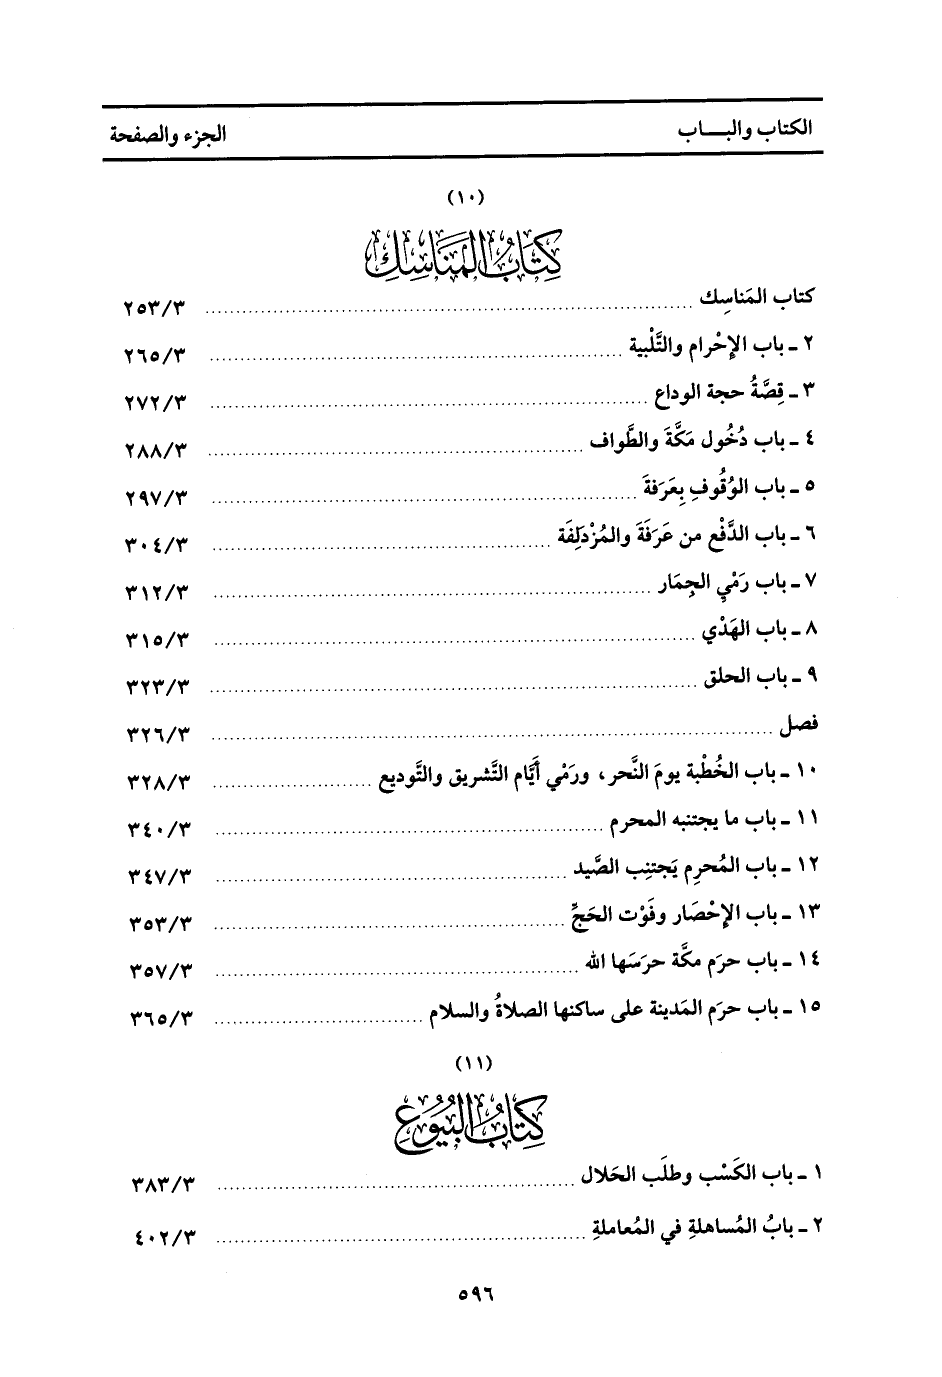 الكتاب والبـــاب الجزء والصفحة
(١٠)
كِتَابُ المَنَاسِكِ
كتاب المَناسِك ........ ٢٥٣/٣
٢ ـ باب الإحْرام والتَّلْبية ........ ٢٦٥/٣
٣ ـ قِصَّةُ حجة الوداع ........ ٢٧٢/٣
٤ ـ باب دُخُول مَكَّةَ والطَّواف ........ ٢٨٨/٣
٥ ـ باب الوُقُوفِ بِعَرَفةَ ........ ٢٩٧/٣
٦ ـ باب الدَّفْع من عَرَفَةَ والمُزْدَلِفَة ........ ٣٠٤/٣
٧ ـ باب رَمْيِ الجِمَار ........ ٣١٢/٣
٨ ـ باب الهَدْي ........ ٣١٥/٣
٩ ـ باب الحلق ........ ٣٢٣/٣
فصل ........ ٣٢٦/٣
١٠ ـ باب الخُطْبة يومَ النَّحر، ورَمْي أَيَّام التَّشريق والتَّوديع ........ ٣٢٨/٣
١١ ـ باب ما يجتنبه المحرم ........ ٣٤٠/٣
١٢ ـ باب المُحرِم يَجتنِب الصَّيد ........ ٣٤٧/٣
١٣ ـ باب الإحْصَار وفَوْت الحَجِّ ........ ٣٥٣/٣
١٤ ـ باب حرَم مكَّة حرَسَها الله ........ ٣٥٧/٣
١٥ ـ باب حرَم المَدينة على ساكنها الصلاةُ والسلام ........ ٣٦٥/٣
(١١)
كِتَابُ البُيُوعِ
١ ـ باب الكَسْب وطلَب الحَلال ........ ٣٨٣/٣
٢ ـ بابُ المُساهلةِ في المُعاملةِ ........ ٤٠٢/٣
٥٩٦